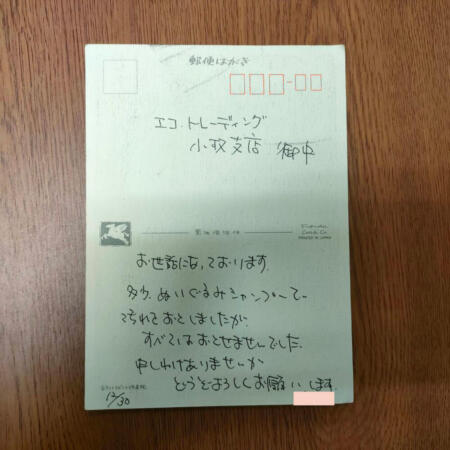 郵便はがき
エコ・トレーディング
小牧支店 御中
PRINTED IN JAPAN
お世話になっております。
多少、ぬいぐるみシャンプーで、
汚れをおとしましたが、
すべてはおとせませんでした。
申しわけありませんが
どうぞよろしくお願いします。
12/30